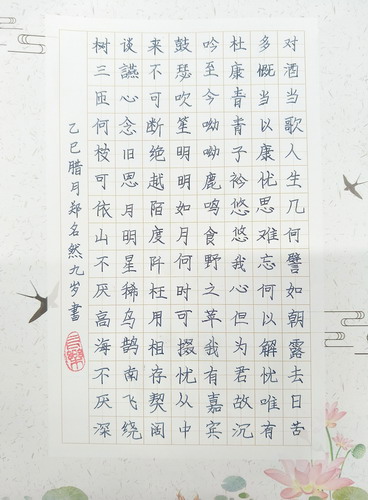 对酒当歌人生几何譬如朝露去日苦
多慨当以康忧思难忘何以解忧唯有
杜康青青子衿悠悠我心但为君故沉
吟至今呦呦鹿鸣食野之苹我有嘉宾
鼓瑟吹笙明明如月何时可掇忧从中
来不可断绝越陌度阡枉用相存契阔
谈讌心念旧思月明星稀乌鹊南飞绕
树三匝何枝可依山不厌高海不厌深
乙巳腊月郑名然九岁书